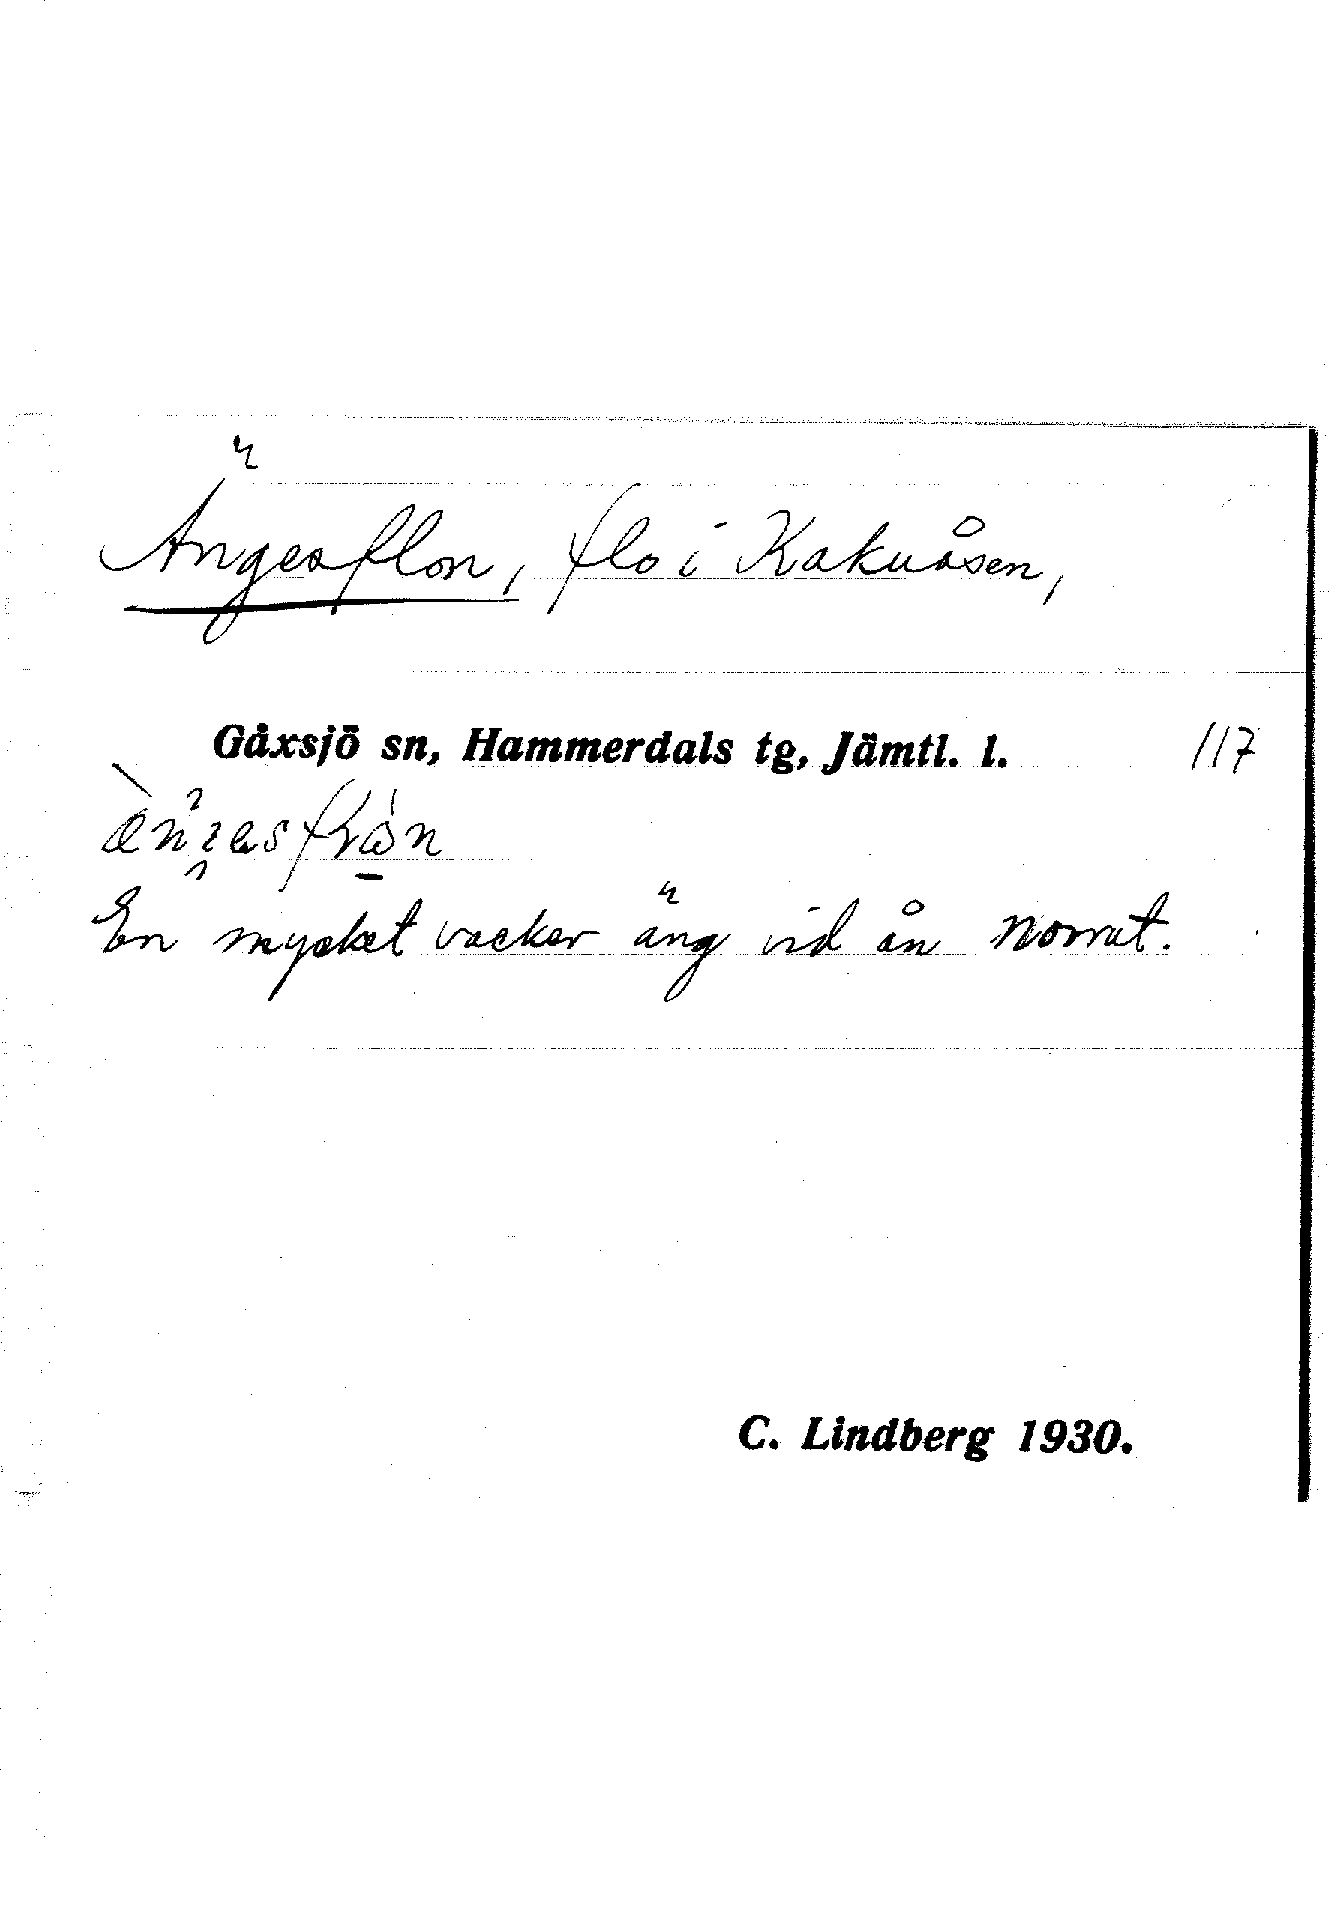 Ängesflon, flo i Kakuåsen,
Gåxsjö sn, Hammerdals tg, Jämtl. l. 117
En mycket vacker äng vid ån norrut.
C. Lindberg 1930.